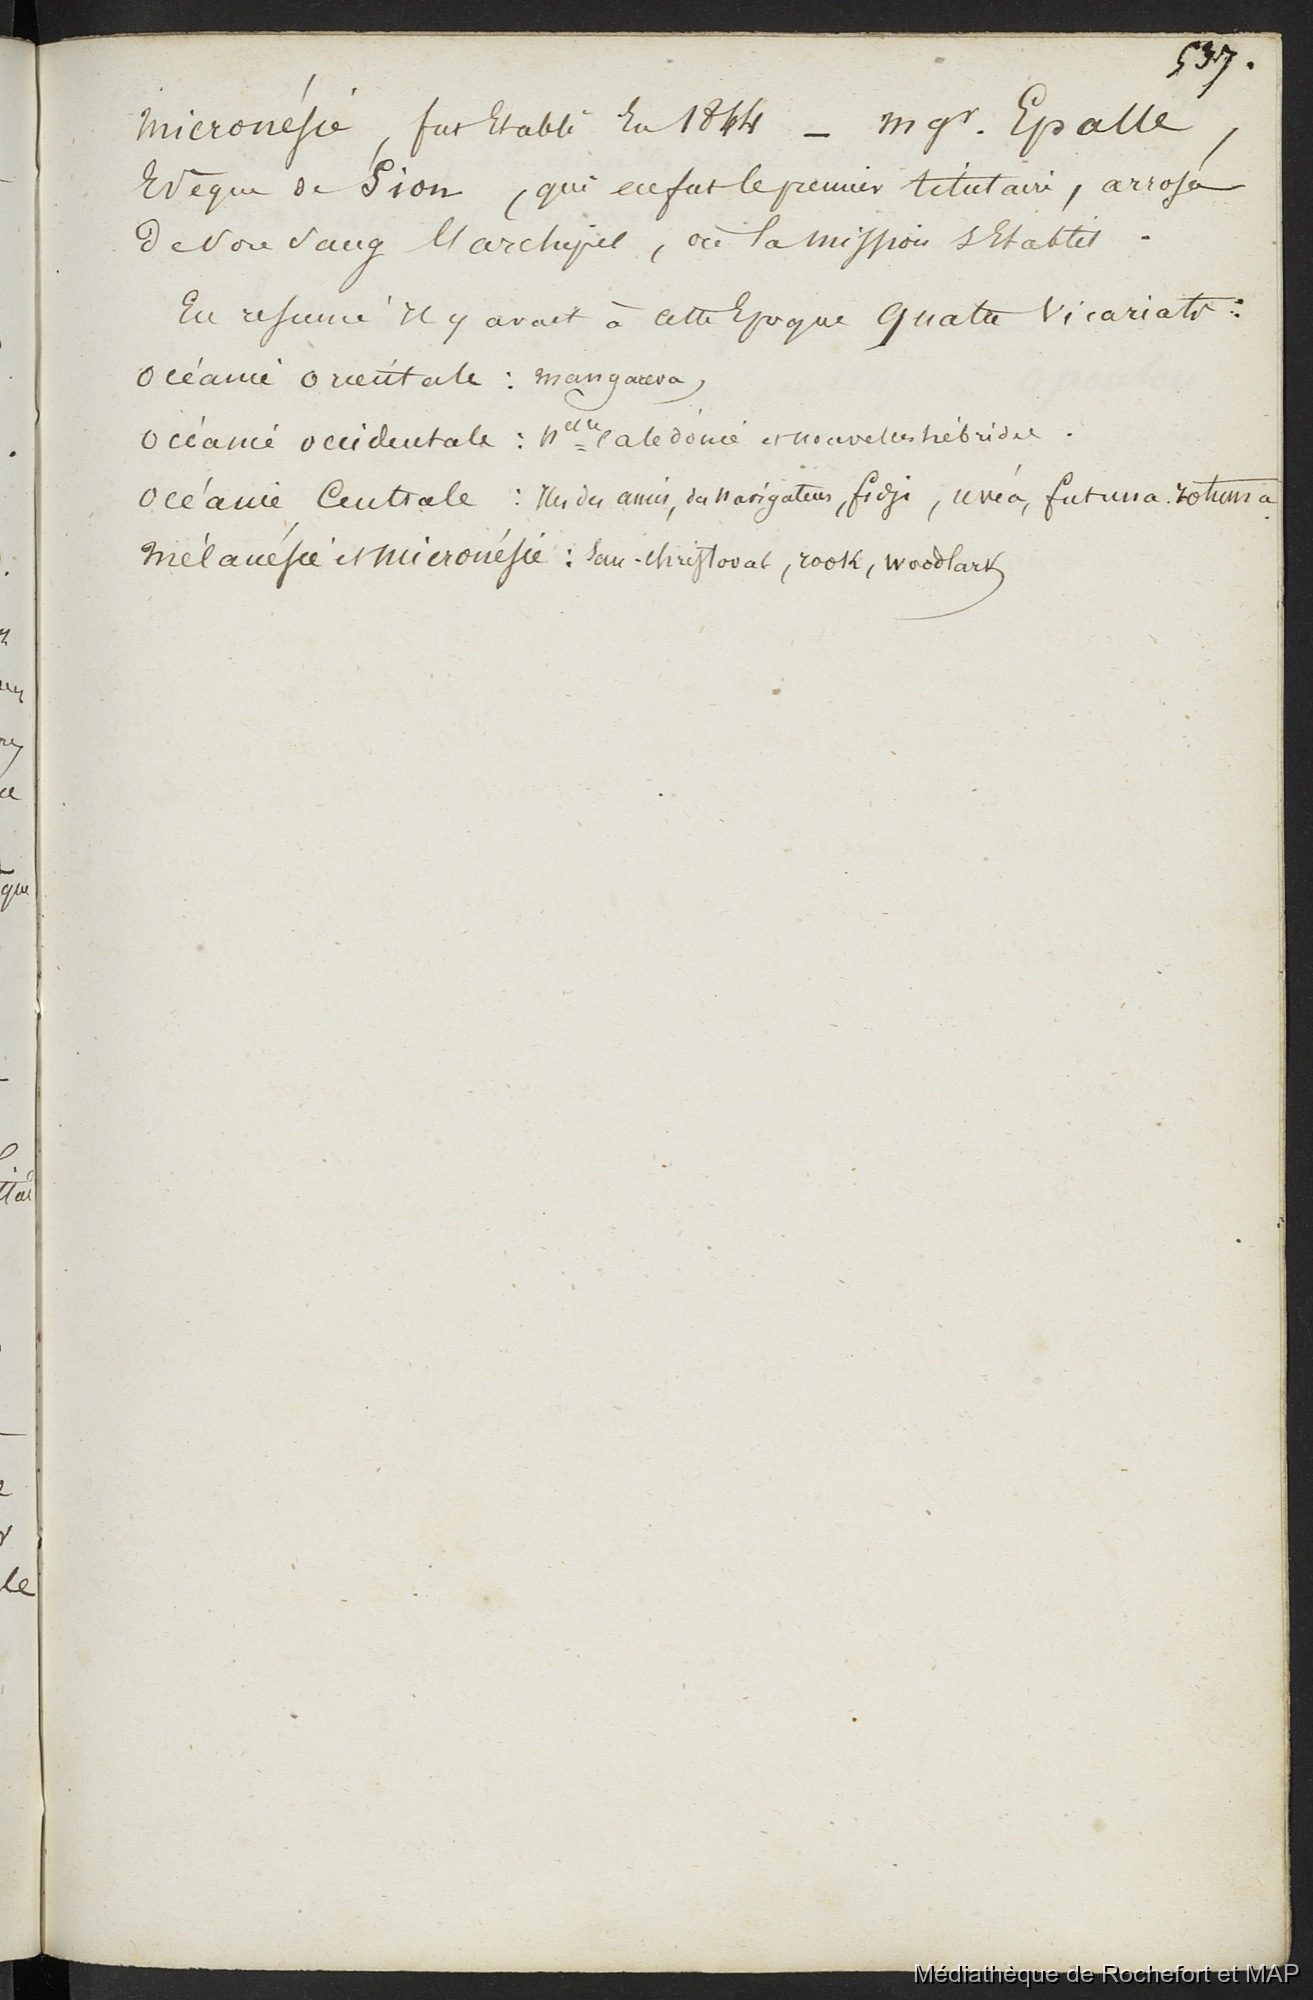 537.
Micronésie, fut Etabli En 1844 – mgr. Epalle,
Evêque de Sion, qui en fut le premier titulaire, arrosa
De son sang l'archipel, où la mission s'Etablit.
En resumé il y avait à cette Epoque quatre Vicariats :
Océanie orientale : mangareva,
Océanie occidentale : nelle Calédonie et nouvelles hébrides.
Océanie Centrale : Iles des amis, des navigateurs, fidji, uvéa, futuna. rotuma.
Mélanésie et Micronésie : San-christoval, rook, woodlark
que
le
Médiathèque de Rochefort et MAP